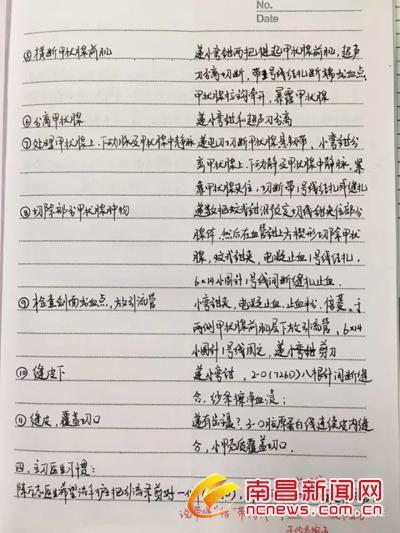 No.
Date
⑤横断甲状腺前肌 递小弯钳两把提起甲状腺前肌,超声
刀分离切断,带1号线结扎断端出血点,
甲状腺拉钩牵开,暴露甲状腺
⑥分离甲状腺 递小弯钳和超声刀分离
⑦处理甲状腺上、下动脉及甲状腺中静脉 递电刀切断甲状腺悬韧带,小弯钳分
离甲状腺上、下动静及甲状腺中静脉,
靠甲状腺夹住,切断带1号线结扎再缝扎
⑧切除部分甲状腺肿物 递数把蚊式钳沿预定切线钳夹住部分
腺体,然后在血管钳上方楔形切除甲状
腺,蚊式钳夹,电凝止血1号线结扎,
6×14小圆针1号线间断缝扎止血.
⑨检查创面出血点,放引流管 小弯钳夹,电凝止血.止血粉、倍菱.于
两侧甲状腺前肌层下放引流管,6×14
小圆针1号线固定.递小弯钳剪刀
⑩缝皮下 递小弯钳,2-0(726D)八根针间断缝
合.纱布擦净血渍;
⑪缝皮,覆盖切口 3-0胶原蛋白线连续皮内缝
合,小甲壳质覆盖切口.
四、主刀医生习惯:
医生希望洗手 把引流 剪
南昌新闻网
ncnews.com.cn